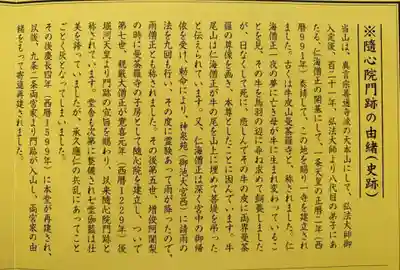 ※隨心院門跡の由緒(史跡)
当山は、真言宗善通寺派の大本山にして、弘法大師御
入定後、百二十一年、弘法大師より八代目の弟子にあ
たる、仁海僧正の開基にして、一条天皇の正暦二年(西
暦991年)奏請して、この地を賜り一寺を建立され
ました。古くは牛皮山曼荼羅寺と、称されました。仁
海僧正一夜の夢に亡き母が牛に生まれ変わっているこ
とを見、その牛を鳥羽の辺に尋ね求めて飼養しました
が、日なくして死に、悲しんでその牛の皮に両界曼荼
羅の尊像を画き、本尊としたことに因んでいます。牛
尾山は仁海僧正が牛の尾を山上に埋めて菩提を弔った
と伝えられています。又、仁海僧正は深く宮中の御帰
依を受け、勅命により、神泉苑(御池大宮西)に請雨の
法を九回も行い、その度に霊験あって雨が降ったので、
雨僧正とも称されました。その後第五世、増俊阿闍梨
の時に曼荼羅寺の子房として隨心院を建立し、ついで
第七世、親厳大僧正が寛喜元年(西暦1229年)後
堀河天皇より門跡の宣旨を賜わり、以来隨心院門跡と
称されています。堂舎も次第に整備され七堂伽藍は壮
美を誇っていましたが、承久應仁の兵乱にあってこと
ごとく灰となってしまいました。
その後慶長四年(西暦1599年)に本堂が再建され、
以後、九条二条両宮家より門跡が入山し、両宮家の由
緒をもって寄進再建されました。